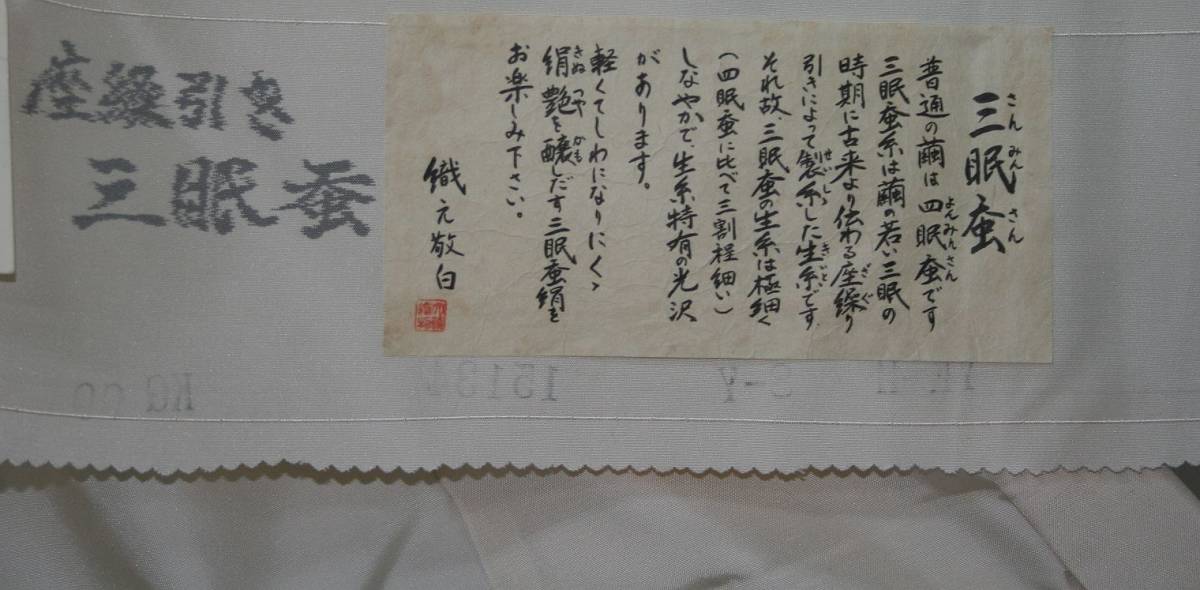 座繰引き
三眠蚕
三眠蚕
さんみんさん
普通の繭は四眠蚕です
よんみんさん
三眠蚕糸は繭の若い三眠の
時期に古来より伝わる座繰り
ざぐ
引きによって製糸した生糸です
せいし
きいと
それ故、三眠蚕の生糸は極細く
(四眠蚕に比べて三割程細い)
しなやかで、生糸特有の光沢
があります。
軽くてしわになりにくく
絹艶を醸しだす三眠蚕絹を
きぬつや
かも
お楽しみ下さい。
織元敬白